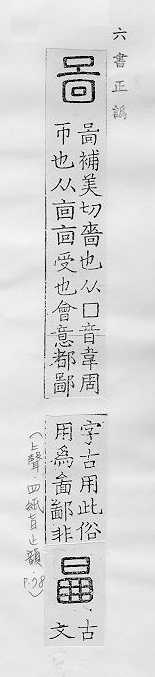 六書正譌
啚補美切嗇也从囗音韋周
帀也从㐭㐭受也會意都鄙
字古用此俗
用爲鄙非
古
文
(上聲四紙旨止韻
P.28)